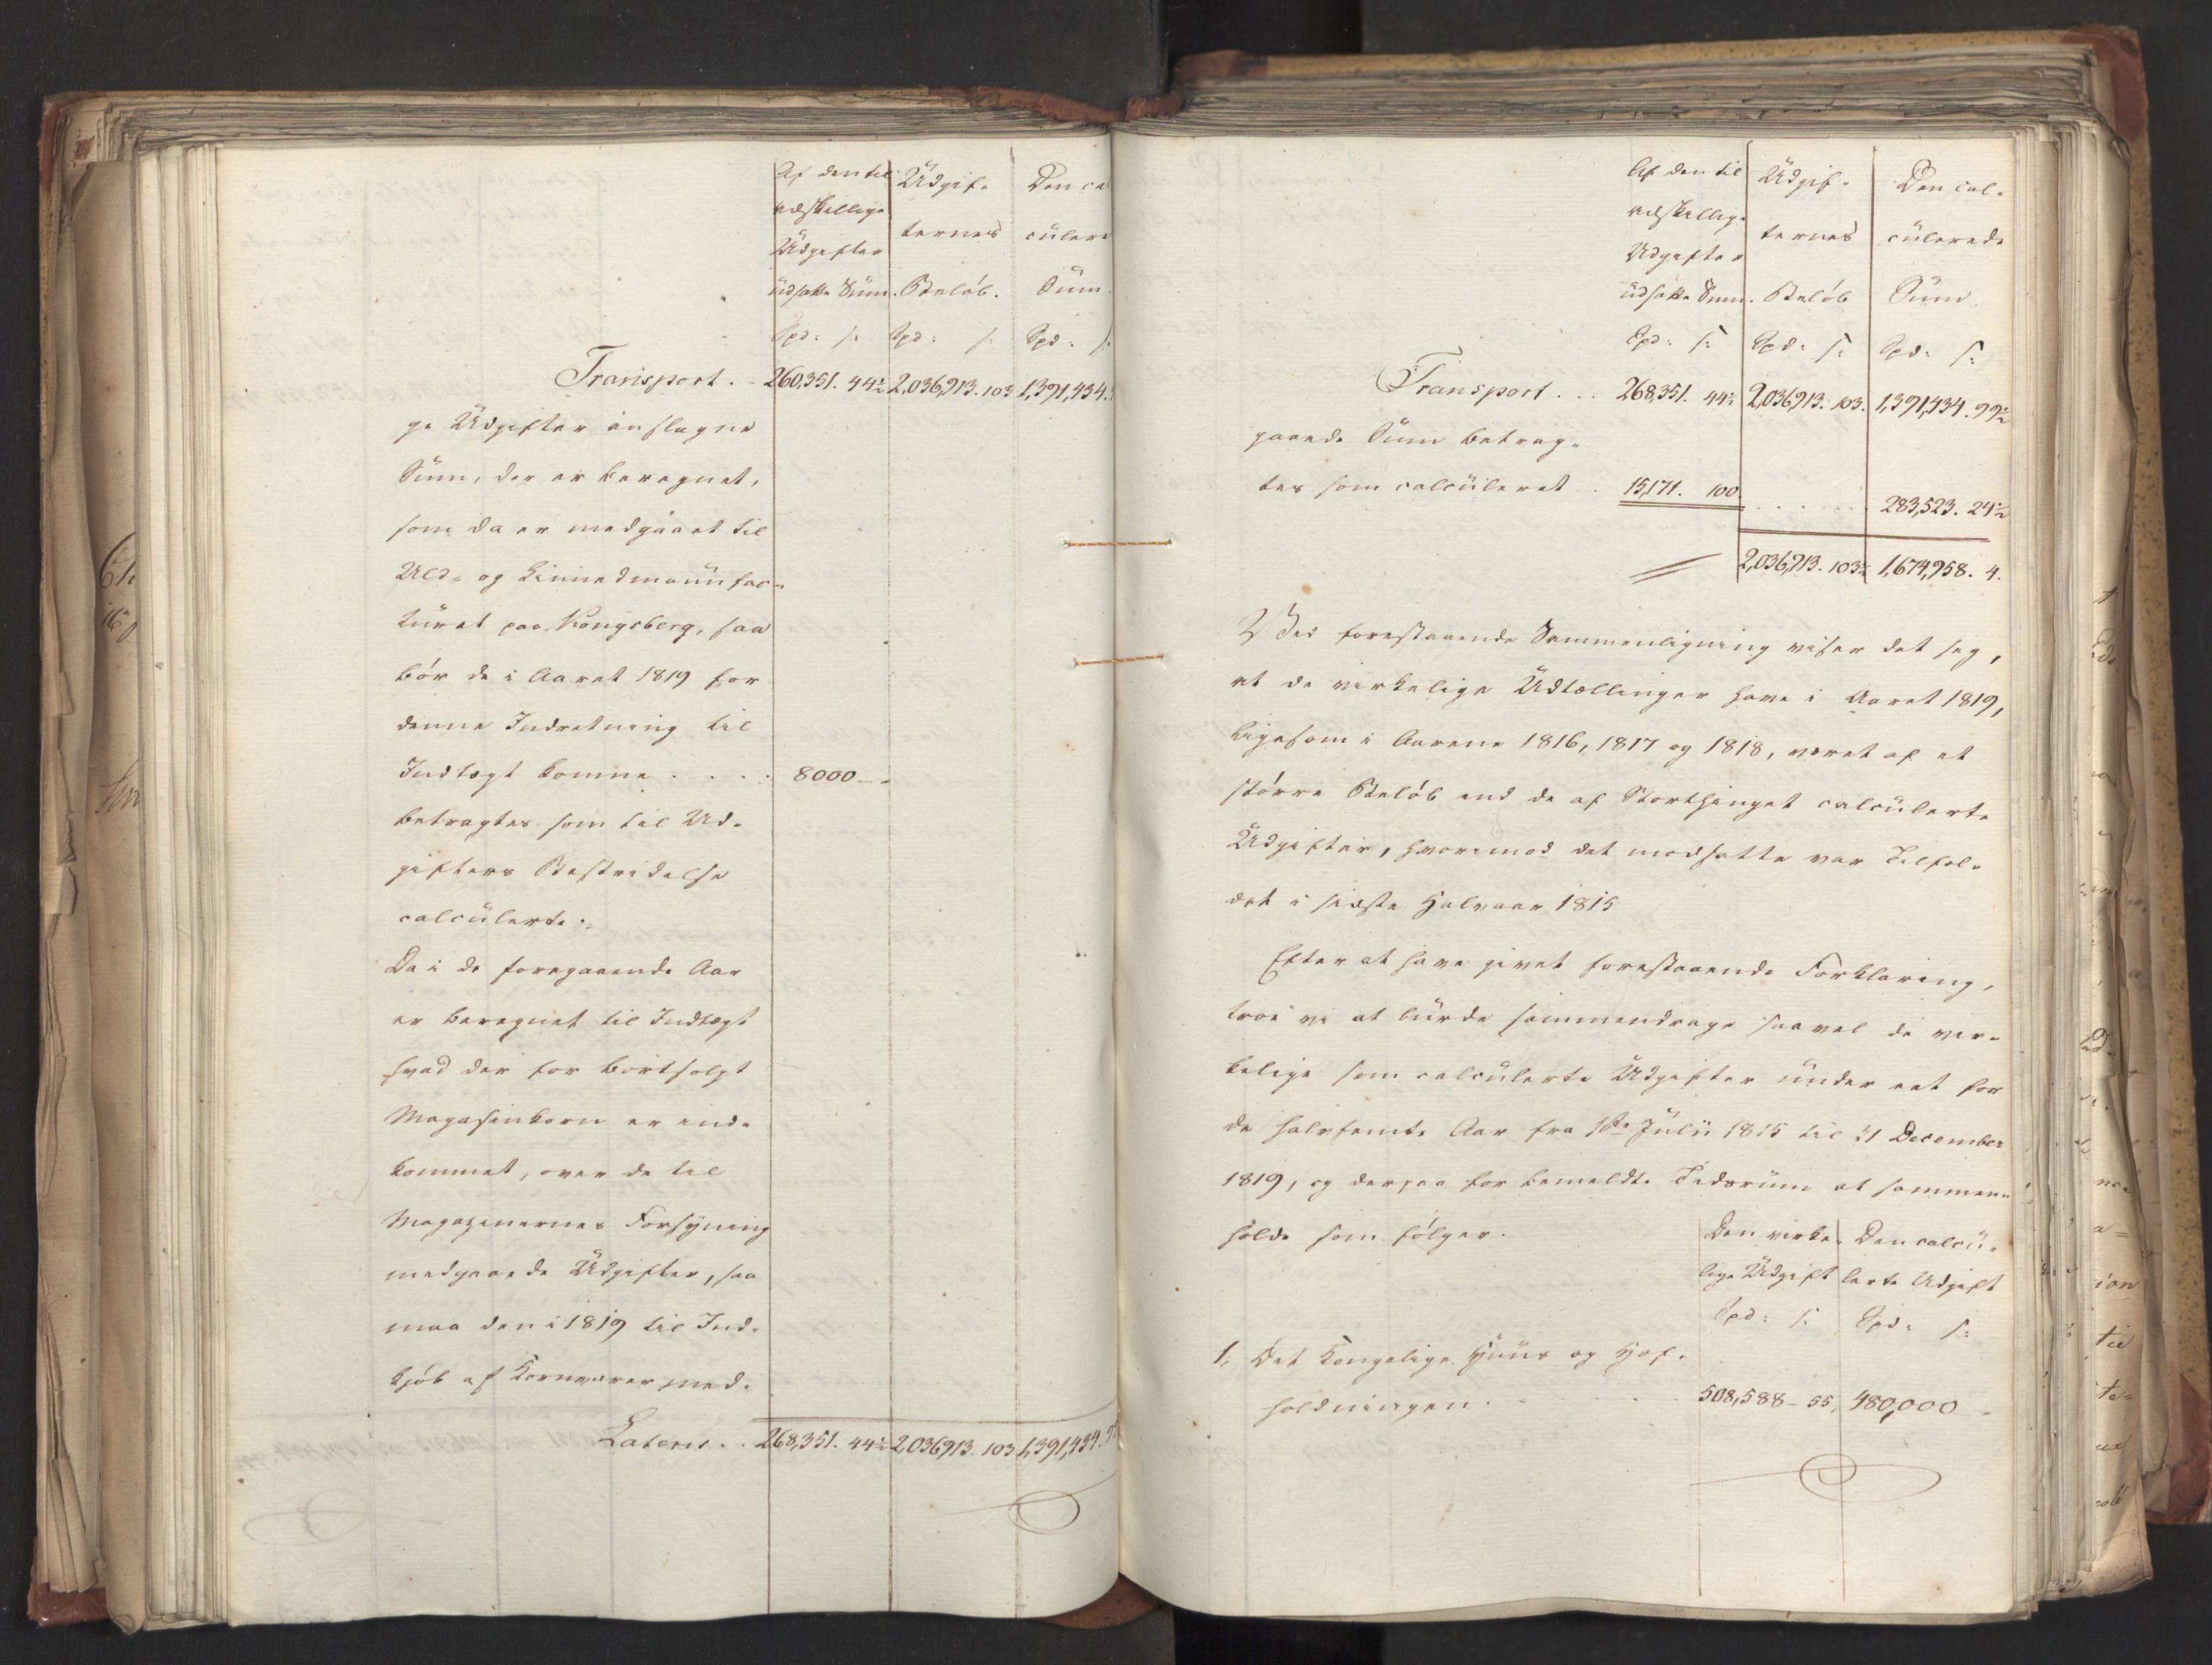 Af den til Udgif- Den cal
adskillige ternes culere
Udgifter
udsatte Sum. Beløb. Sum.
Spd: s: Spd: s: Spd: s:
Transport. - 260,351. 44½ 2,036,913. 103 1,391,434.
ge Udgifter anslagne
Sum, der er beregnet,
som da er medgaaet til
Uld- og Linnedmanufac-
turet paa Kongsberg, saa
bør de i Aaret 1819 for
denne Indretning til
Indtægt komne . . . . 8000 - -
betragtes som til Ud-
gifters Bestridelse
calculerte.
Da i de foregaaende Aar
er beregnet til Indtægt
hvad der for bortsolgt
Magasinkorn er ind-
kommet, over de til
Magazinernes Forsyning
medgaaede Udgifter, saa
maa den i 1819 til Ind-
kjøb af Kornvarer med-
Lateris. . 268,351. 44½ 2,036,913. 103 1,391,434. 9
Af den til Udgif- Den cal-
adskillige ternes culerede
Udgifter
udsatte Sum. Beløb Sum
Spd: s: Spd: s: Spd: s:
Transport . . . 268,351. 44½ 2,036,913. 103. 1,391,434. 99½
gaaende Sum betrag-
tes som calculeret . 15,171. 100. . . . . . . 283,523. 24½
2,036,913. 103½ 1,674,958. 4.
Ved forestaaende Sammenligning viser det sig,
at de virkelige Udtællinger have i Aaret 1819,
ligesom i Aarene 1816, 1817 og 1818, været af et
større Beløb end de af Storthinget calculerte
Udgifter, hvorimod det modsatte var Tilfæl-
det i sidste Halvaar 1815
Efter at have givet forestaaende Forklaring,
troe vi at burde sammendrage saavel de vir-
kelige som calculerte Udgifter under eet for
de halvfemte Aar fra 1ste Julii 1815 til 31 December
1819, og derpaa for bemeldte Tidsrum at sammen-
holde som følger.
Den virke- Den calcu-
lige Udgift lerte Udgift
Spd: s: Spd: s:
1, Det Kongelige Huus og Hof-
holdningen. . . 508,588 - 55, 480,000 -